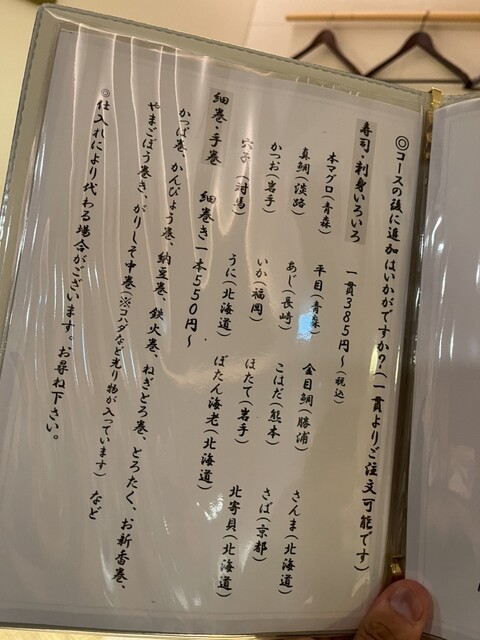 ◎コースの後に追加はいかがですか？(一貫よりご注文可能です)
寿司・刺身いろいろ　一貫385円〜(税込)
本マグロ(青森)　平目(青森)　金目鯛(勝浦)　さんま(北海道)
真鯛(淡路)　あじ(長崎)　こはだ(熊本)　さば(京都)
かつお(岩手)　いか(福岡)　ほたて(岩手)　北寄貝(北海道)
穴子(対馬)　うに(北海道)　ぼたん海老(北海道)
細巻・手巻　細巻き一本550円〜
かっぱ巻、かんぴょう巻、納豆巻、鉄火巻、ねぎとろ巻、とろたく、お新香巻、
やまごぼう巻き、がりしそ中巻(※コハダなど光り物が入っています)　など
◎仕入れにより代わる場合がございます。お尋ね下さい。